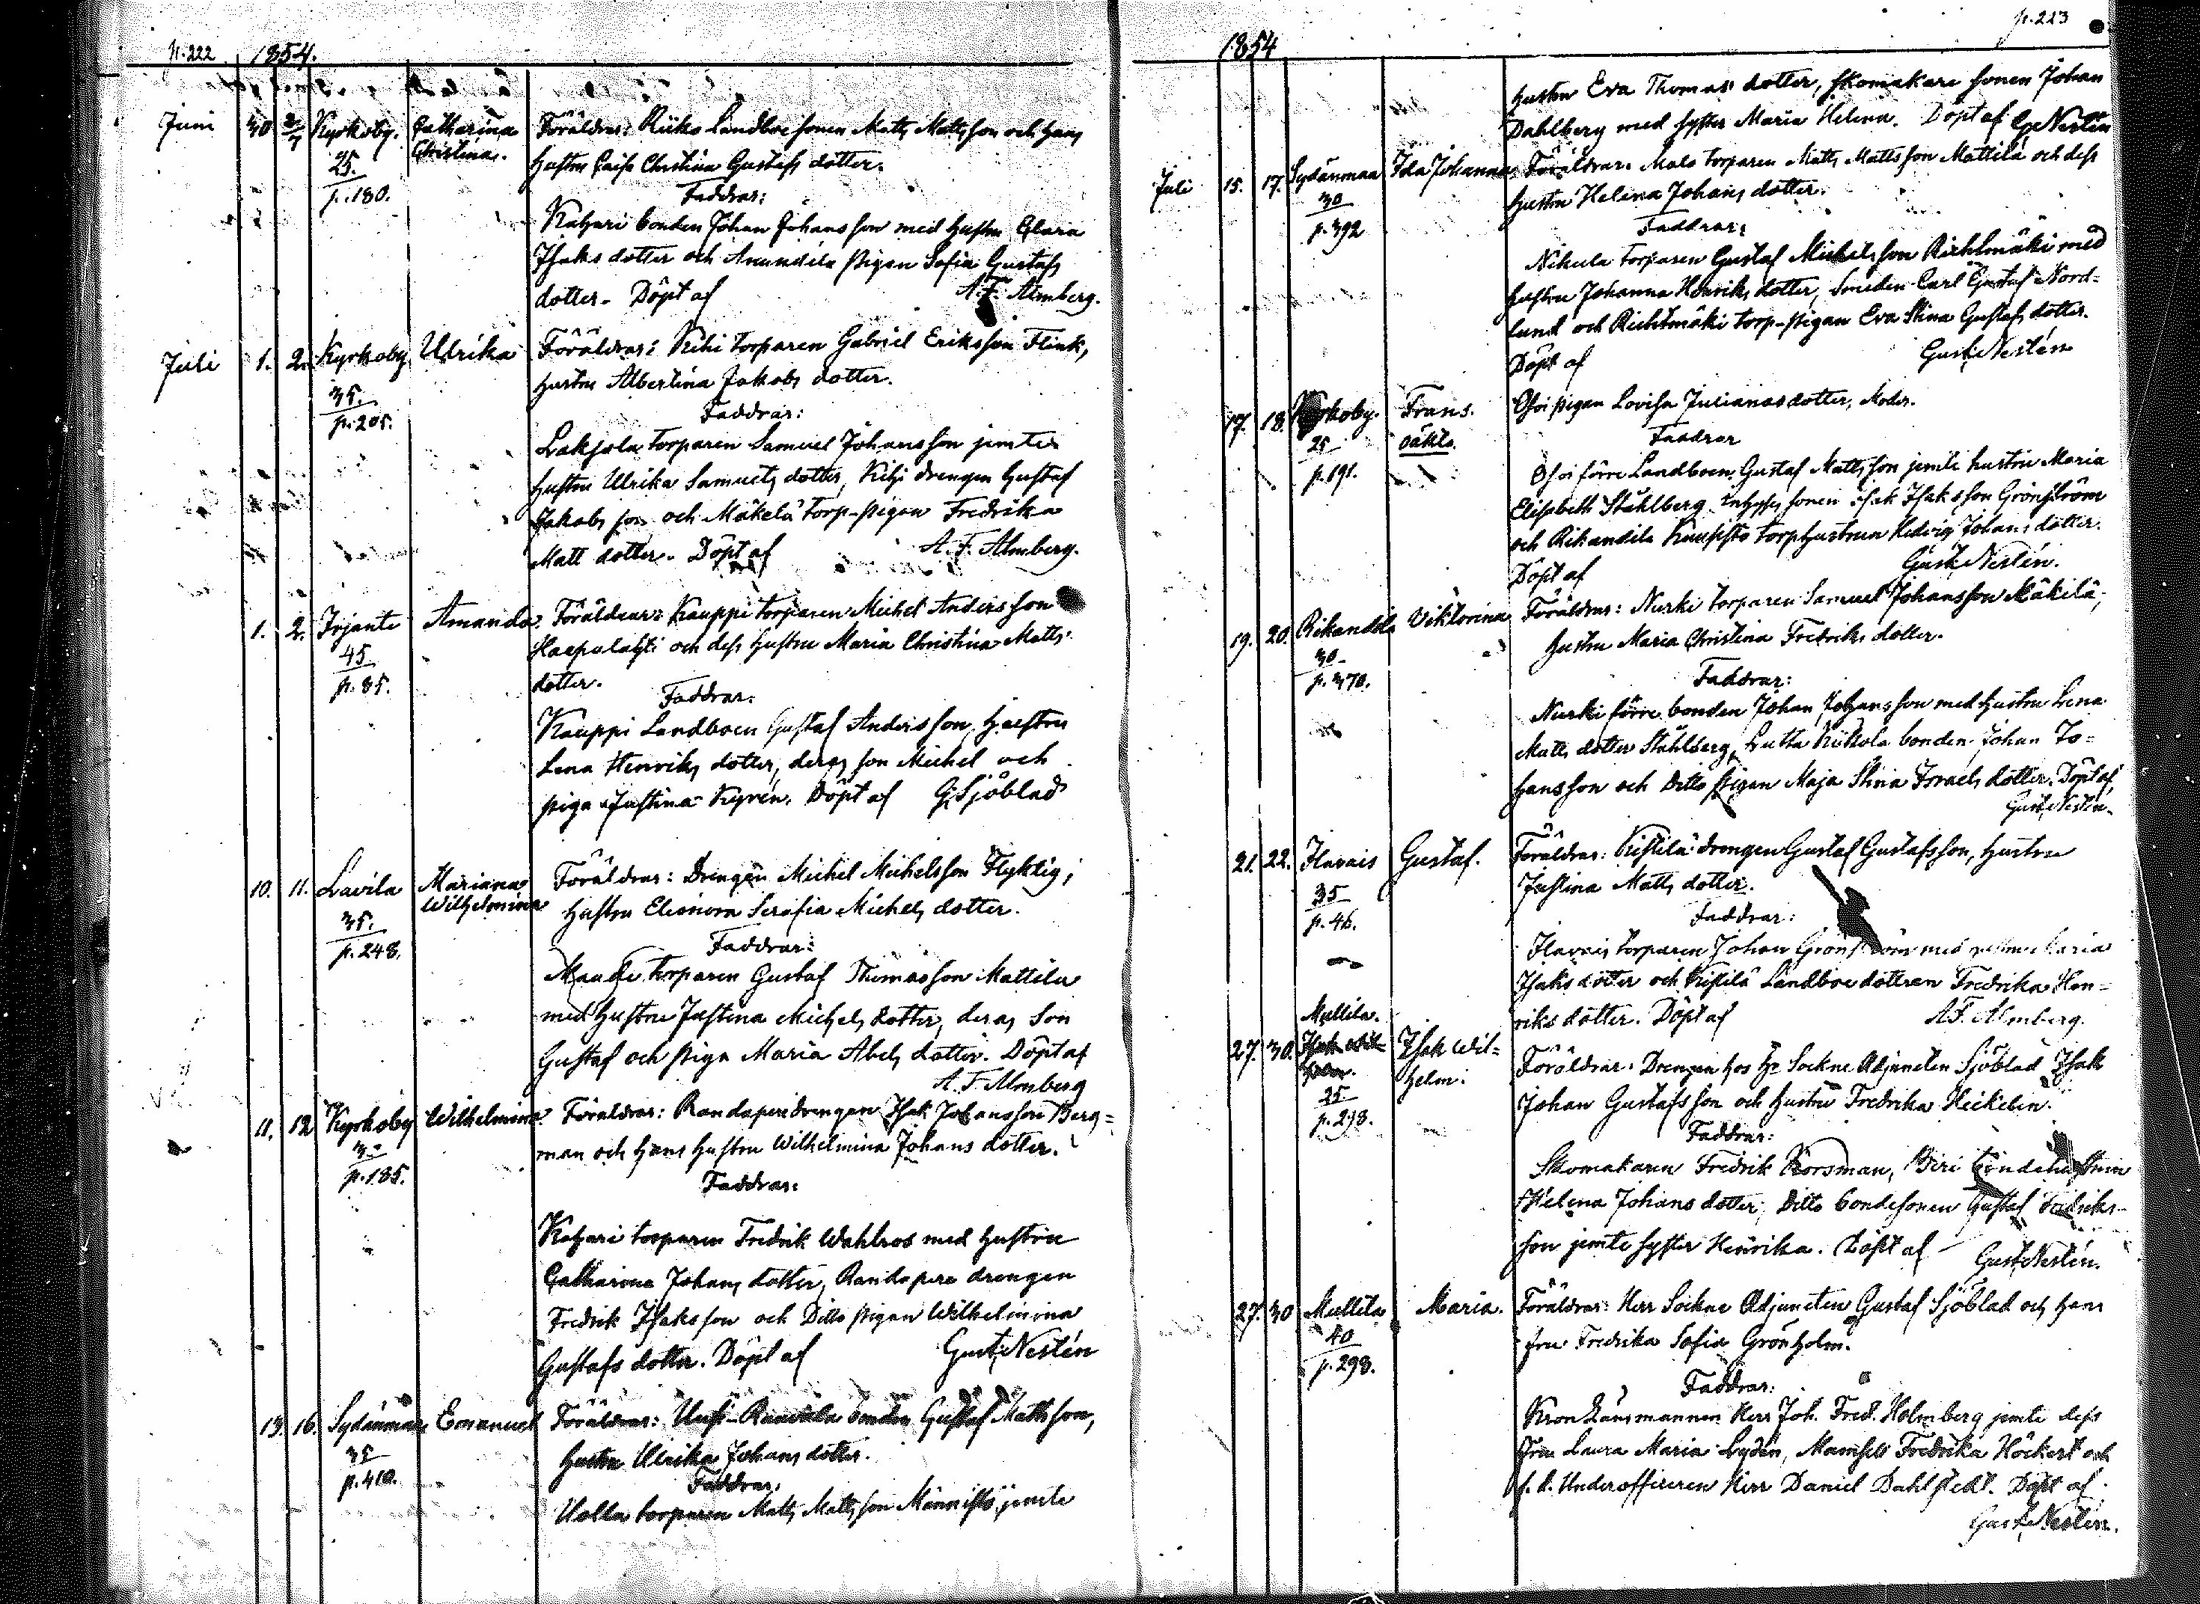 p. 222 1854.
Juni 30 2/7 Kyrkoby. Catharina Föräldrar: Landboe sonen Matts Mattsson och hans
Christina. hustru Caisa Christina Gustafs dotter.
25.
p. 180. Faddrar:
Katzari bonden Johan Johansson med hustru Clara
Isaks dotter och Anundila pigan Sofia Gustafs
dotter. Döpt af A. F. Almberg.
Juli 1. 2. Kyrkoby Ulrika Föräldrar: Kihi torparen Gabriel Eriksson Flink,
hustru Albertina Jakobs dotter.
35. Faddrar:
p. 205.
Laksola torparen Samuel Johansson jemte
hustru Ulrika Samuels dotter, Kihi drengen Gustaf
Jakobs son och Mäkelä torp-pigan Fredrika
Matts dotter. Döpt af A. F. Almberg.
1. 2. Irjante Amanda. Föräldrar: Kauppi torparen Michel Andersson
45 Haapulahti och dess hustru Maria Christina Matts
p. 85. dotter.
Faddrar.
Kauppi Landboen Gustaf Andersson, hustru
Lena Henriks dotter, deras son Michel och
piga Justina Kyrén. Döpt af G. Sjöblad
10. 11. Lavila Mariana Föräldrar: Drengen Michel Michelsson Flyktig,
Wilhelmina hustru Eleonora Serafia Michels dotter.
35.
p. 248. Faddrar:
torparen Gustaf Thomasson Mattila
med hustru Justina Michels dotter, deras son
Gustaf och piga Maria Abels dotter. Döpt af
A. F. Almberg
11. 12 Kyrkoby Wilhelmina. Föräldrar: Randapere drengen Isak Johansson Berg=
30 man och hans hustru Wilhelmina Johans dotter.
p. 185. Faddrar:
Katzari torparen Fredrik Wahlros med hustru
Catharina Johans dotter, Randapere drengen
Fredrik Isaksson och Ditto pigan Wilhelmina
Gustafs dotter. Döpt af Gust. Nestén
13. 16. Sydänmaa Emanuel Föräldrar: Uusi-Raavala bonden Gustaf Mattsson,
35 hustru Ulrika Johans dotter.
p. 410. Faddrar.
Uolla torparen Matts Mattsson Männistö, jemte
p. 223
1854
hustru Eva Thomas dotter, skomakare sonen Johan
Dahlberg med syster Maria Helena. Döpt af G. Nestén
Juli 15. 17. Sydänmaa Ida Johanna. Föräldrar: torparen Matts Mattsson Mattila och dess
30 hustru Helena Johans dotter.
p. 392 Faddrar:
Nikula torparen Gustaf Michelsson Riihimäki med
hustru Johanna Henriks dotter, Smeden Carl Gustaf Nord=
lund och Riihimäki torp-pigan Eva Stina Gustafs dotter.
Döpt af Gust. Nestén
17. 18. Kyrkoby. Frans. pigan Lovisa Julianas dotter, Moder.
25 oäkta. Faddrar
p. 191. förre Landboen Gustaf Mattsson jemte hustru Maria
Elisabeth Stählberg, sonen Isak Isaksson Grönström
och Rikandila torphustrun Hedvig Johans dotter.
Döpt af Gust. Nestén.
19. 20. Rikandila Viktorina Föräldrar: Nurki torparen Samuel Johansson Mäkilä,
30 hustru Maria Christina Fredriks dotter.
p. 370. Faddrar:
Nurki förre bonden Johan Johansson med hustru Lena
Matts dotter Stählberg, bonden Johan Jo=
hansson och Ditto pigan Maja Stina Israels dotter. Döpt af
Gust. Nestén.
21. 22. Havais Gustaf. Föräldrar: Kistilä drengen Gustaf Gustafsson, hustru
35 Justina Matts dotter.
p. 46. Faddrar:
Havais torparen Johan Grönström med hustru Maria
Isaks dotter och Kistilä Landboe dottren Fredrika Hen=
riks dotter. Döpt af A. F. Almberg.
Mullila.
27. 30. Isak Wil= Föräldrar: Drengen hos Hr Sockne Adjuncten Sjöblad Isak
helm. Johan Gustafsson och hustru Fredrika Heickelin.
35
p. 298. Faddrar:
Skomakaren Fredrik Korsman,
Helena Johans dotter, Ditto bondesonen Gustaf Fredriks=
son jemte syster Henrika. Döpt af Gust. Nestén.
27. 30 Mullila Maria. Föräldrar: Herr Sockne Adjuncten Gustaf Sjöblad och hans
40 fru Fredrika Sofia Grönholm.
p. 298. Faddrar:
Kron Länsmannen Herr Joh. Fred. Holmberg jemte dess
fru Laura Maria Lydén, Mamsell Fredrika Höckert och
f. d. Underofficeren Herr Daniel Dahlstedt. Döpt af.
Gust. Nestén.